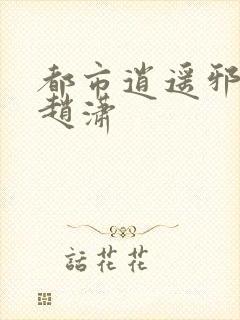 都市逍遥邪
趙潇
話花花